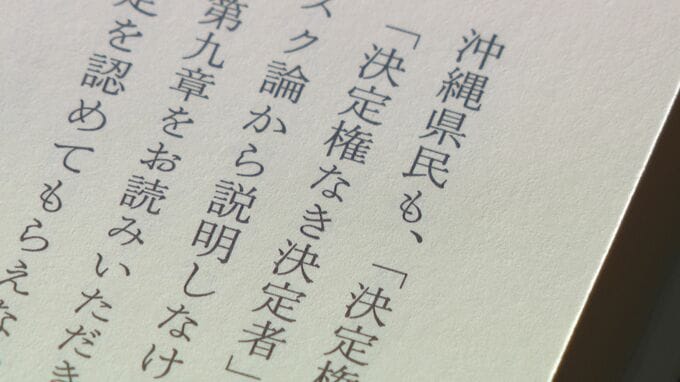 沖縄県民も、「決定権
「決定権なき決定者」
スク論から説明しなけ
第九章をお読みいただき
定を認めてもらえな